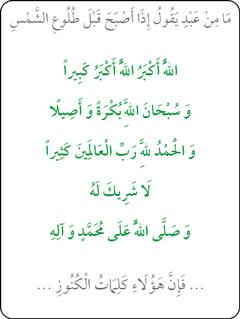 مَا مِنْ عَبْدٍ يَقُولُ إِذَا أَصْبَحَ قَبْلَ طُلُوعِ الشَّمْسِ
اللهُ أَكْبَرُ اللهُ أَكْبَرُ كَبِيراً
وَ سُبْحَانَ اللهِ بُكْرَةً وَ أَصِيلًا
وَ الْحَمْدُ لِلَّهِ رَبِّ الْعَالَمِينَ كَثِيراً
لَا شَرِيكَ لَهُ
وَ صَلَّى اللهُ عَلَى مُحَمَّدٍ وَ آلِهِ
... فَإِنَّ هَؤُلَاءِ كَلِمَاتُ الْكُنُوزِ ...